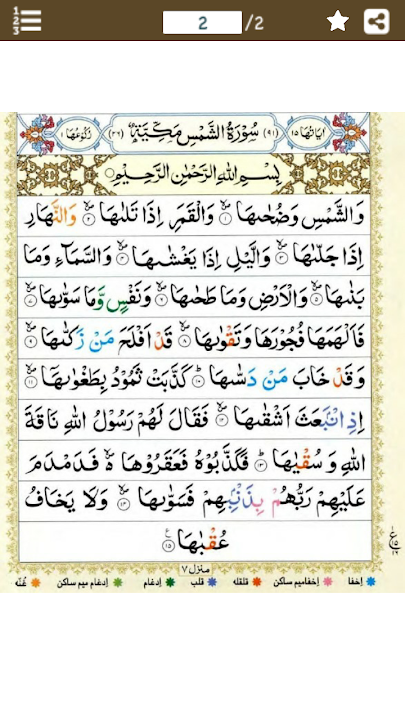 2 /2
اٰیَاتُهَا ۱۵ (۹۱) سُوْرَةُ الشَّمْسِ مَكِّيَّةٌ (۲۶) رُكُوْعُهَا ۱
بِسْمِ اللّٰهِ الرَّحْمٰنِ الرَّحِيْمِ
وَالشَّمْسِ وَضُحٰىهَا ۱ وَالْقَمَرِ اِذَا تَلٰىهَا ۲ وَالنَّهَارِ
اِذَا جَلّٰىهَا ۳ وَالَّيْلِ اِذَا يَغْشٰىهَا ۴ وَالسَّمَآءِ وَمَا
بَنٰىهَا ۵ وَالْاَرْضِ وَمَا طَحٰىهَا ۶ وَنَفْسٍ وَّمَا سَوّٰىهَا ۷
فَاَلْهَمَهَا فُجُوْرَهَا وَتَقْوٰىهَا ۸ قَدْ اَفْلَحَ مَنْ زَكّٰىهَا ۹
وَقَدْ خَابَ مَنْ دَسّٰىهَا ۱۰ كَذَّبَتْ ثَمُوْدُ بِطَغْوٰىهَا ۱۱
اِذِ انْۢبَعَثَ اَشْقٰىهَا ۱۲ فَقَالَ لَهُمْ رَسُوْلُ اللّٰهِ نَاقَةَ
اللّٰهِ وَ سُقْيٰهَا ۱۳ فَكَذَّبُوْهُ فَعَقَرُوْهَا ۪ۙ فَدَمْدَمَ
عَلَيْهِمْ رَبُّهُمْ بِذَنْۢبِهِمْ فَسَوّٰىهَا ۱۴ وَلَا يَخَافُ
عُقْبٰهَا ۱۵
منزل ۷
اِخفا اِخفامیم ساکن قلقله قلب اِدغام اِدغام میم ساکن غُنّه